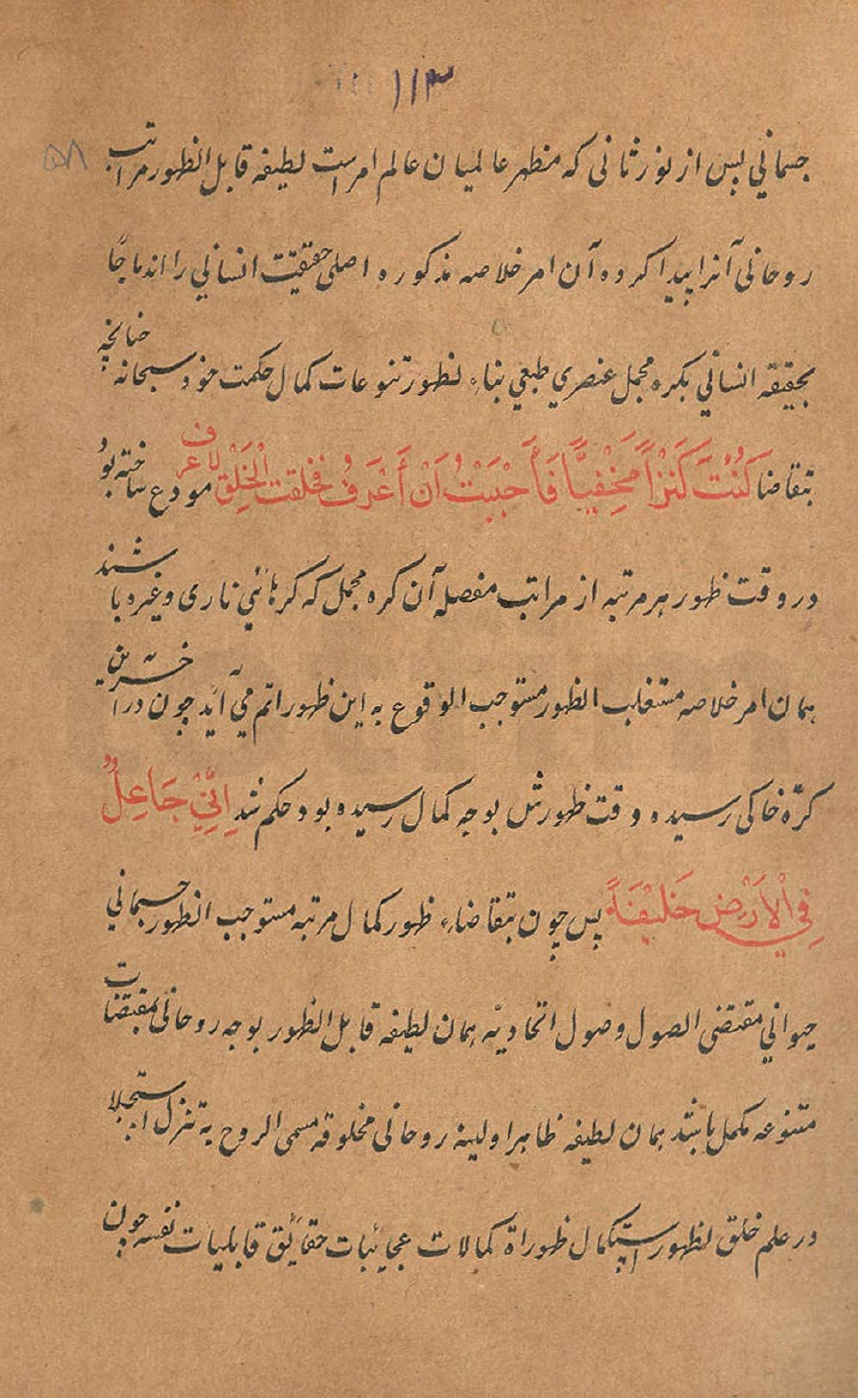 ۱۱۳
۵۸
جسمانی پس از نور ثانی که مظهر عالمیان عالم امر است لطیفه قابل الظهور مراتب
روحانی آنرا پیدا کرده آن امر خلاصه مذکوره اصلی حقیقت انسانی را اندماجًا
بحقیقه انسانی بکره مجمل عنصری طبعی بناء لظهور تنوعات کمال حکمت خود سبحانه چنانچه
بتقاضا کُنْتُ کَنْزاً مَخْفِیًّا فَأَحْبَبْتُ اَنْ أَعْرَفُ فخلقت الْخَلْقَ لاعرف مودع ساخته بود
در وقت ظهور هر مرتبه از مراتب مفصله آن کره مجمل که کرهائی ناری و غیره باشند
همان امر خلاصه مستغلب الظهور مستوجب الوقوع به این ظهور اتم می آید چون در آخرین مرتبه
کرّه خاکی رسیده وقت ظهورش بوجه کمال رسیده بود حکم شد اِنِّیْ جَاعِلٌ
فِی الْاَرْضِ خَلِیْفَةً پس چون بتقاضاء ظهور کمال مرتبه مستوجب الظهور جسمانی
حیوانی مقتضی الصول وصول اتحادیه همان لطیفه قابل الظهور بوجه روحانی بمقتضات
متنوعه مکمل باشد همان لطیفه ظاهرا ولینه روحانی مخلوقه مسمی الروح به تنزل استجلا
در علم خلق لظهور استکمال ظهوراة کمالات عجائبات حقائق قابلیات نفسه چون